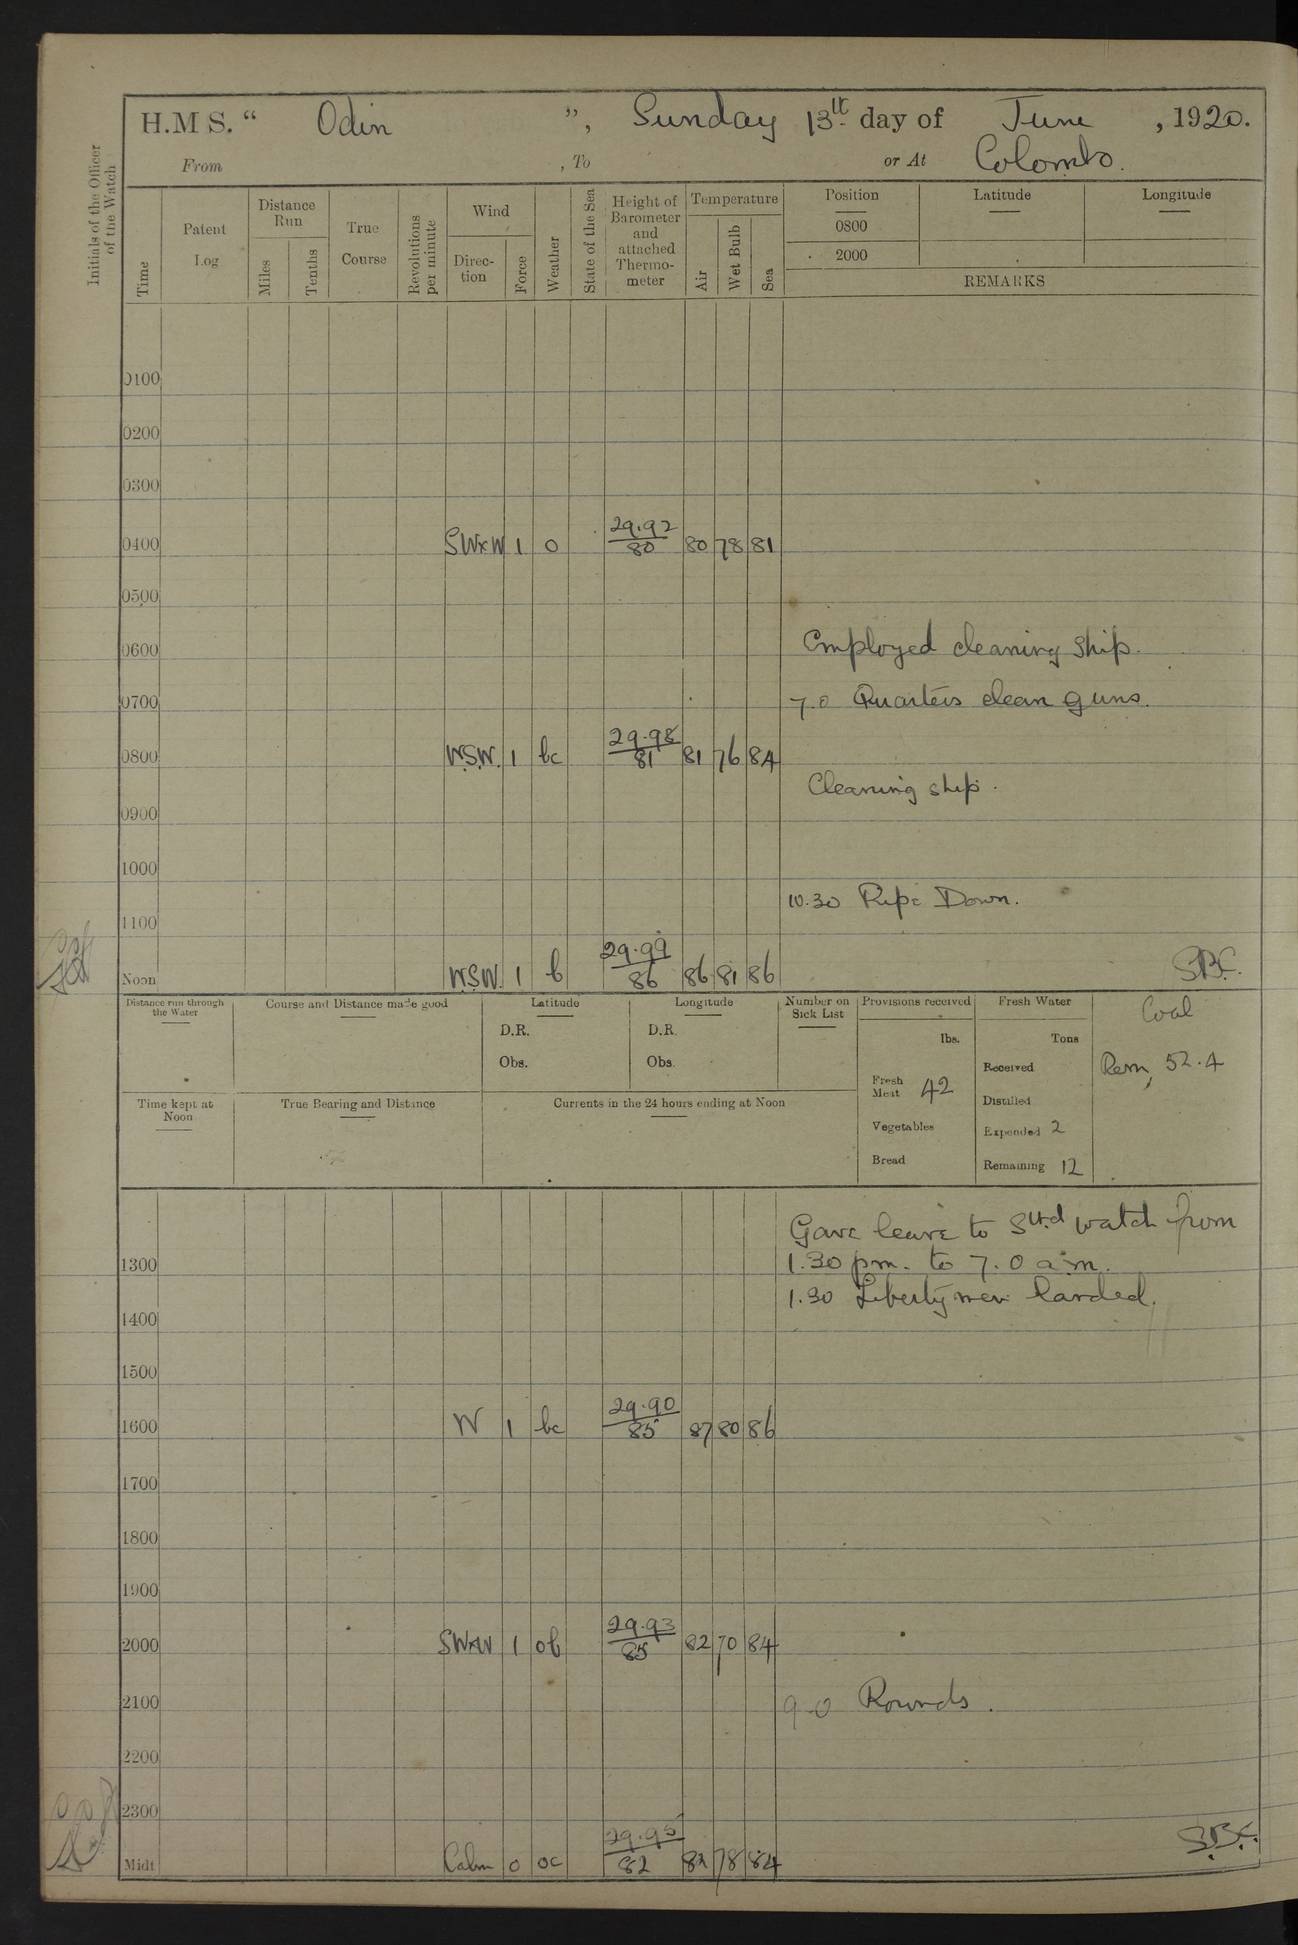 H.M S. “ Odin ”, Sunday 13th day of June , 1920.
From , To or At Colombo.
Initials of the Officer of the Watch
Time
Patent Log
Distance Run
Miles
Tenths
True Course
Revolutions per minute
Wind
Direc-tion
Force
Weather
State of the Sea
Height of Barometer and attached Thermo-meter
Temperature
Air
Wet Bulb
Sea
Position
Latitude
Longitude
0800
2000
REMARKS
0100
0200
0300
0400 SWxW 1 o 29.92/80 80 78 81
0500
0600 Employed cleaning ship.
0700 7.0 Quarters clean guns.
0800 W.S.W. 1 bc 29.98/81 81 76 84
Cleaning ship.
0900
1000
10.30 Pipe Down.
1100
Noon W.S.W. 1 b 29.99/86 86 81 86 S.B.C.
Distance run through the Water
Course and Distance made good
Latitude
D.R.
Obs.
Longitude
D.R.
Obs.
Number on Sick List
Provisions received
lbs.
Fresh Meat 42
Vegetables
Bread
Fresh Water
Tons
Received
Distilled
Expended 2
Remaining 12
Coal
Rem, 52.4
Time kept at Noon
True Bearing and Distance
Currents in the 24 hours ending at Noon
Gave leave to Stbd watch from
1300 1.30 pm. to 7.0 a.m.
1.30 Liberty men landed.
1400
1500
1600 W 1 bc 29.90/85 87 80 86
1700
1800
1900
2000 SWxW 1 ob 29.93/85 82 70 84
2100 9.0 Rounds.
2200
2300
Midt Calm 0 oc 29.95/82 82 78 84 S.B.C.